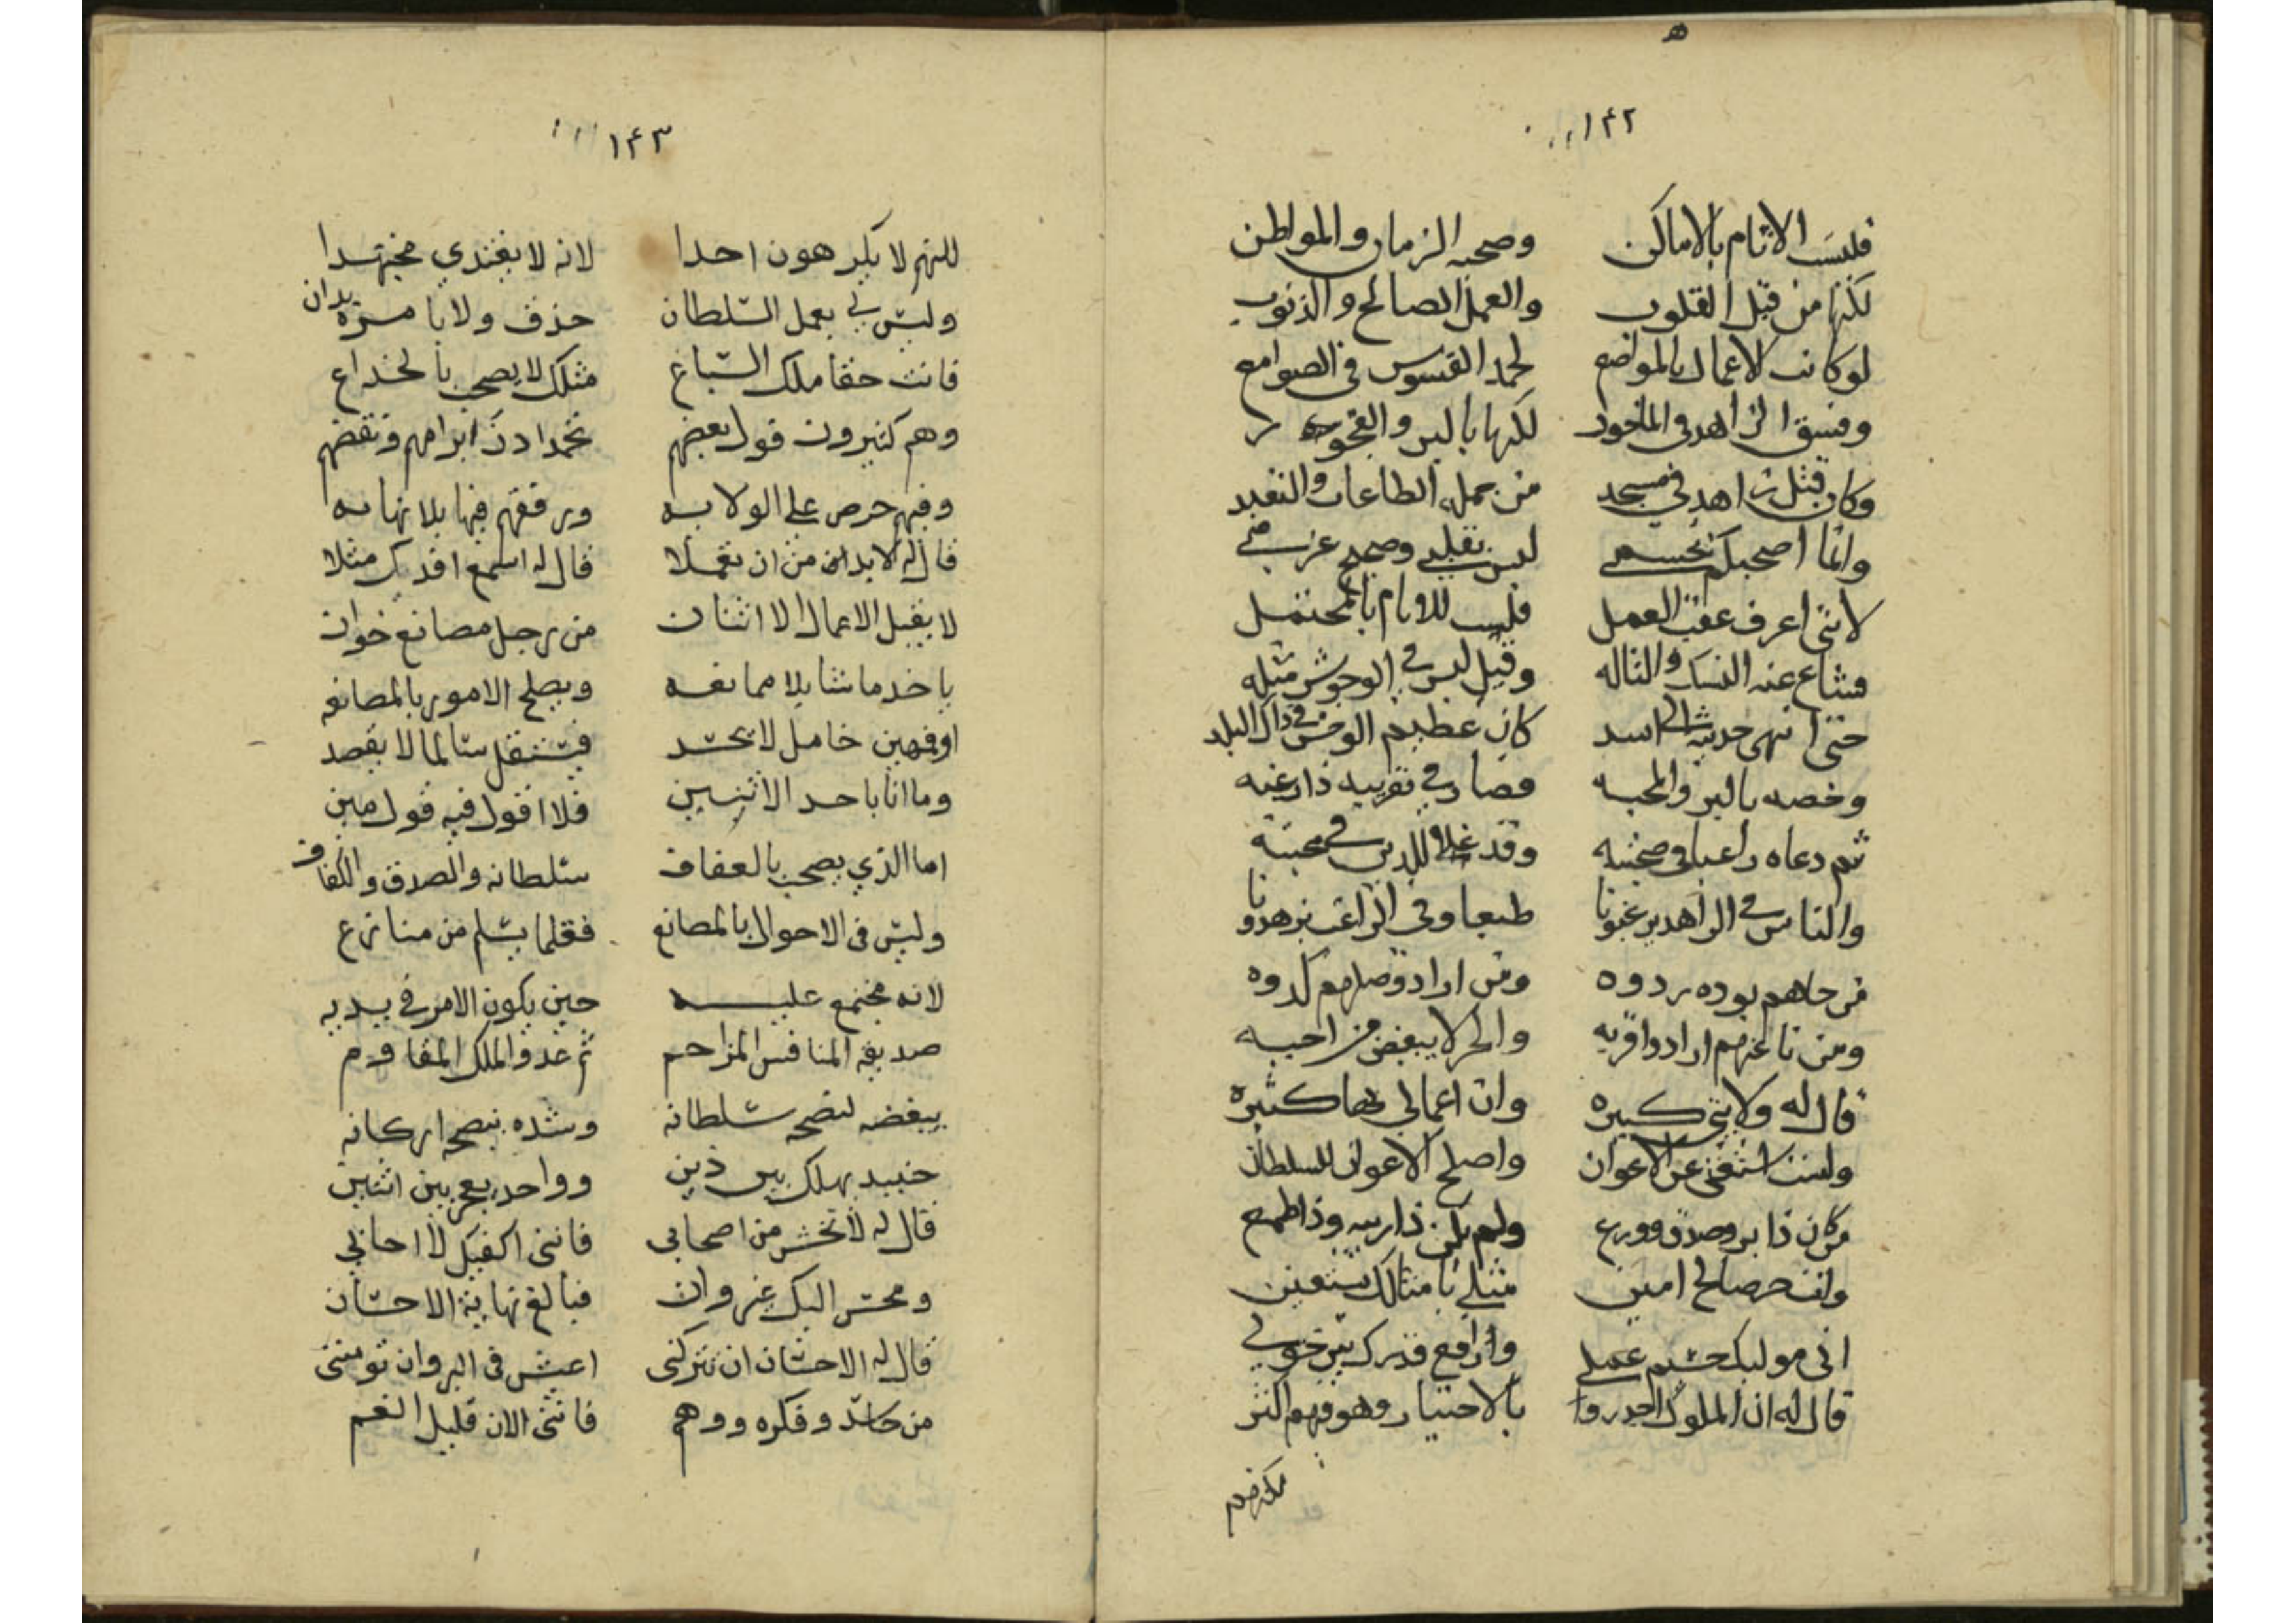 ١٤٢
فليست الاثام بالاماكن وصحبه الزمان والمواطن
لكنها من قبل القلوب والعمل الصالح والذنوب
لو كانت الاعمال بالمواضع لحمد القسوس في الصوامع
وفسق الزاهد في الماخور لكنها بالبر والفجور
وكان قتل زاهد في مسجد من جمله الطاعات والتعبد
وانما اصحبكم بجسمي ليس بقلبي وصحيح عزمي
لانني اعرف عقب العمل فلست للاثام بالمحتمل
فشاع عنه النسك والتاله وقيل ليس في الوحوش مثله
حتى انهى حديثه الى اسد كان عظيم الوحش في ذاك البلد
وخصه بالبر والمحبه فصار في تقريبه ذا رغبه
ثم دعاه راغبا في صحبته وقد غلا للدين في محبته
والناس في الزاهد يرغبونا طبعا وفي الراغب يزهدونا
من جاهم بوده ردوه ومن اراد وصلهم كدوه
ومن نا عنهم ارادوا قربه والحر لا يبغض من احبه
قال له ولايتي كبيره وان اعمالي لها كثيره
ولست استغني عن الاعوان واصلح الاعوان للسلطان
من كان ذا بر وصدق وورع ولم يكن ذا ريبه وذا طمع
وانت حر صالح امين مثلي بامثالك يستعين
اني موليك جسيم عملي وارافع قدرك بين خولي
قال له ان الملوك اجدروا بالاختيار وهو فيهم اكثر
١٤٣
لكنهم لا يكرهون احدا لانه لا يغتدي مجتهدا
وليس لي بعمل السلطان حذق ولا بامره يدان
فانت حقا ملك السباع مثلك لا يصحب بالخداع
وهم كثيرون قول بعضهم
وفيهم حرص على الولايه ورفقهم فيها بلا نهايه
قال له لا بد من ان تعملا قال له اسمع افدك مثلا
لا يقبل الاعمال الا اثنان من رجل مصانع خوان
ياخذ ما شا بلا ممانعه ويصلح الامور بالمصانعه
او مهين خامل لا يحسد فيستقل سالما لا يقصد
وما انا باحد الاثنين فلا اقول فيه قول مين
اما الذي يصحب بالعفاف سلطانه والصدق والكفاف
وليس في الاحوال بالمصانع فقلما يسلم من منازع
لانه مجتمع عليه حين يكون الامر في يديه
صديقه المنافس المزاحم ثم عدو الملك المقاوم
يبغضه لنصحه سلطانه وشده بنصحه اركانه
حنييد يهلك بين ذين وواحد يعجز بين اثنين
قال له لا تخش من اصحابي فانني اكفيك لا احابي
ومحسن اليك غير وان فبالغ نهاية الاحسان
قال له الاحسان ان تتركني اعيش في البر وان تومنني
من حاسد وفكره ووهم فانني الان قليل الغم